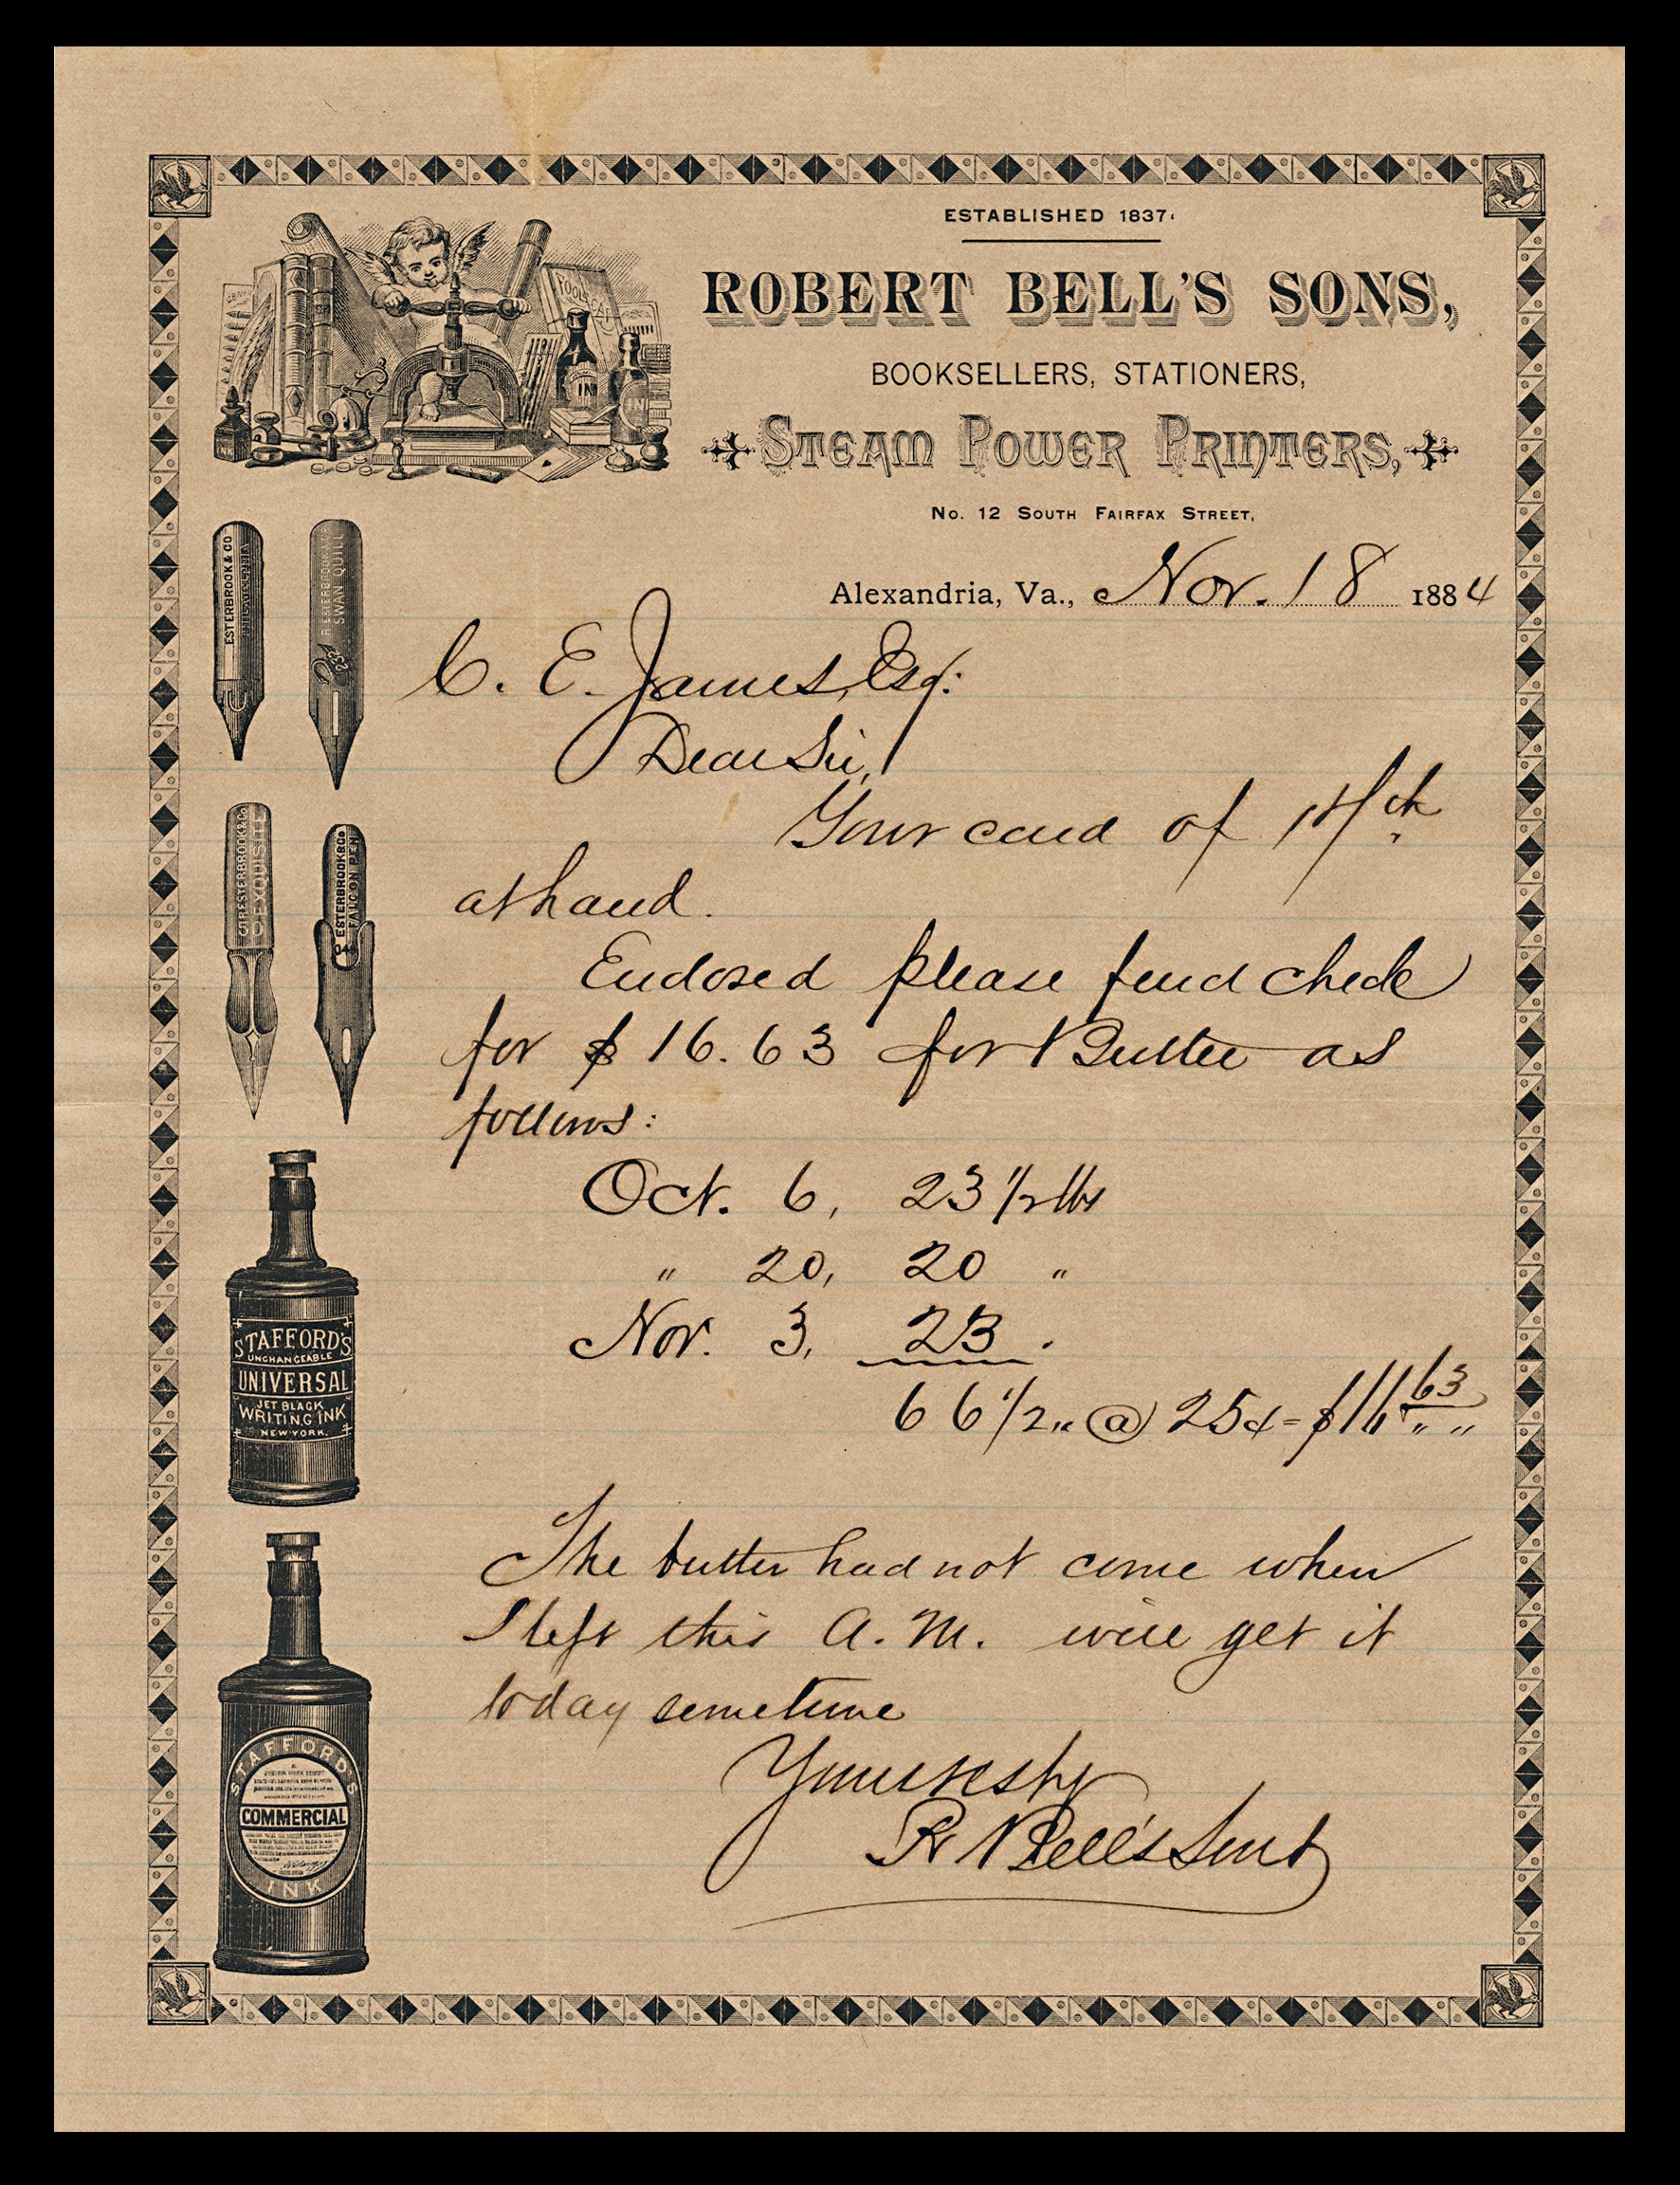 ESTABLISHED 1837.
ROBERT BELL'S SONS,
BOOKSELLERS, STATIONERS,
STEAM POWER PRINTERS,
No. 12 SOUTH FAIRFAX STREET,
Alexandria, Va., Nov. 18 1884
C. E. James, Esq.
Dear Sir,
Your card of 17th
at hand.
Enclosed please find check
for $16.63 for Butter as
follows:
Oct. 6, 23 1/2 lbs
" 20, 20 "
Nov. 3, 23 .
66 1/2 " @ 25¢ = $16 63
The butter had not come when
I left this A. M. will get it
today sometime
Yours resply
R Bell's Sons
ESTERBROOK & CO
R. ESTERBROOK & CO
SWAN QUILL
ESTERBROOK & CO
EXQUISITE
ESTERBROOK & CO
FALCON PEN
048
STAFFORD'S
UNCHANGEABLE
UNIVERSAL
JET BLACK
WRITING INK
NEW YORK.
STAFFORD'S
COMMERCIAL
INK